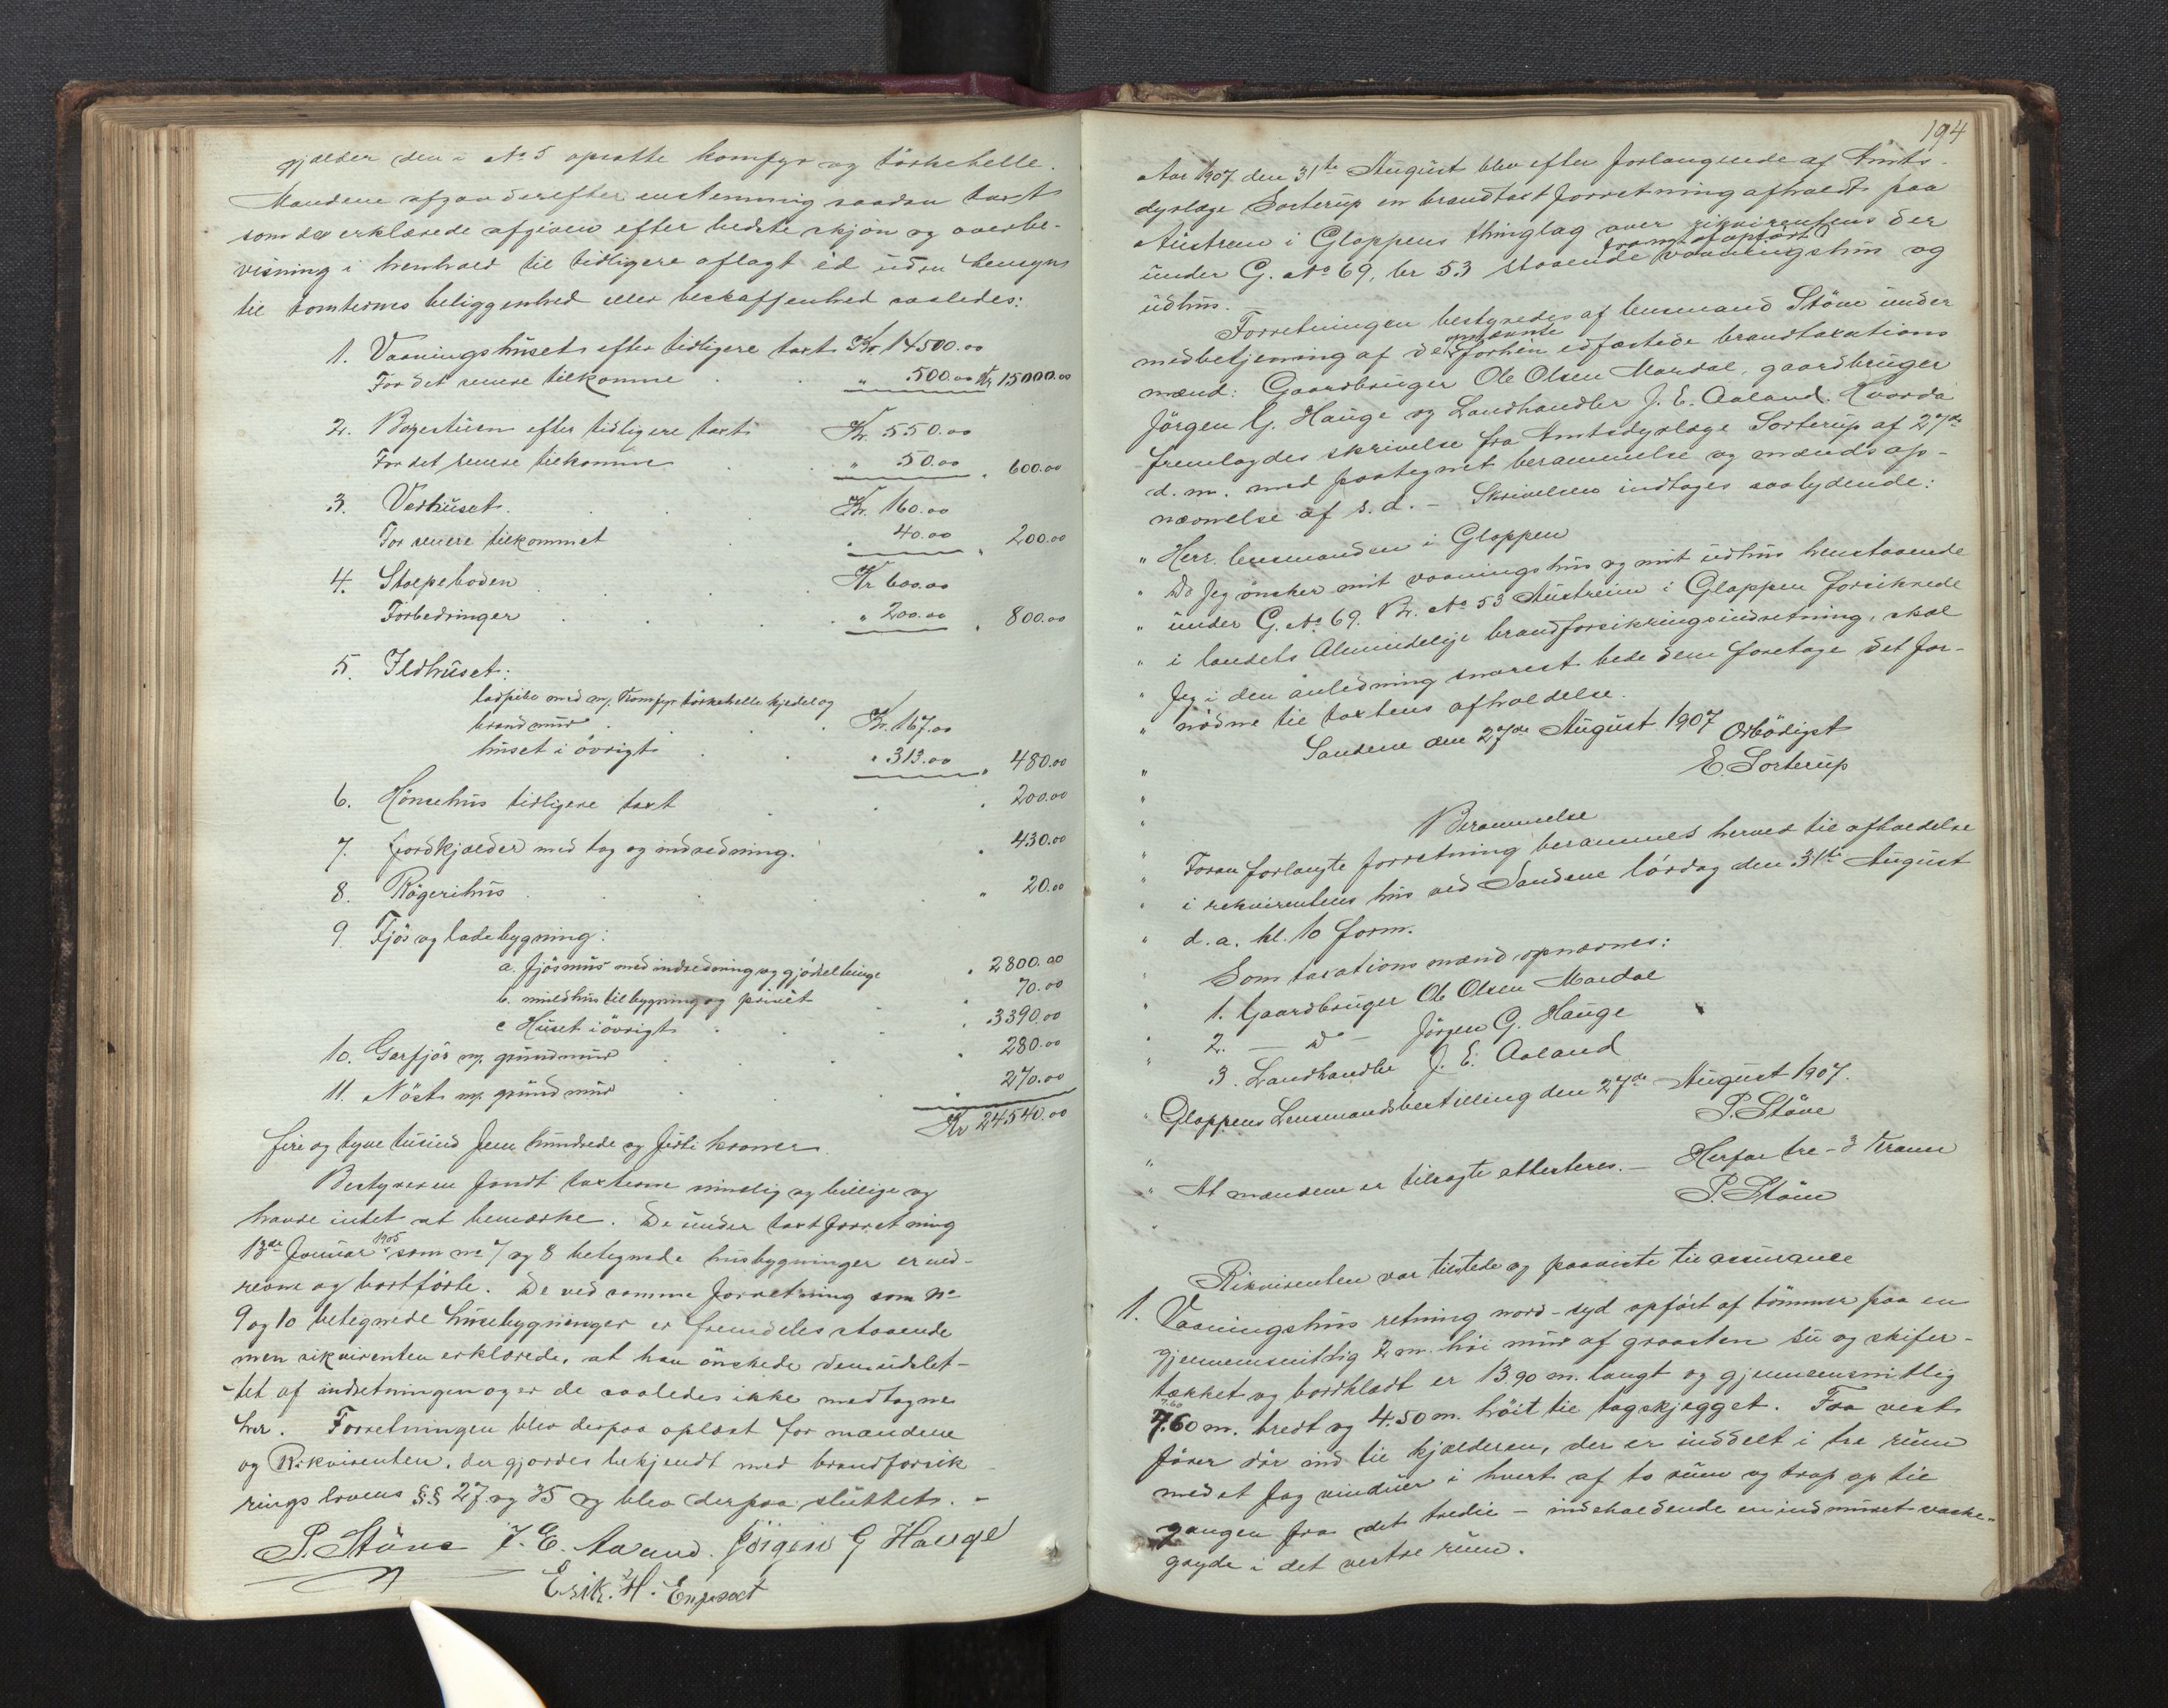 gjælder den i No 5 opsatte komfyr og törkehelle.
Mændene afgav derefter enstemmig saadan taxt
som de erklærede afgiven efter bedste skjøn og overbe-
visning i henhold til tidligere aflagt ed uden hensyn
til tomternes beliggenhed eller beskaffenhed saaledes:
1. Vaaningshuset efter tidligere taxt Kr. 14500.00
For det senere tilkomne . . " 500.00 Kr 15000.00
2. Borgestuen efter tidligere taxt Kr. 550.00
For det senere tilkomne . " 50.00 " 600.00
3. Vedhuset . . . Kr. 160.00
For senere tilkommet " 40.00 " 200.00
4. Stolpeboden . . . Kr 600.00
Forbedringer . . . " 200.00 " 800.00
5. Ildhuset:
ladpibe med m/. Komfyr törkehelle kjedel og
brandmur . . . Kr. 167.00
huset i övrigt . . " 313.00 " 480.00
6. Hönsehus tidligere taxt . . 200.00
7. Jordkjælder med tag og indredning. " 430.00
8. Rögerihus . . . . " 20.00
9. Fjös og ladebygning:
a. fjösmur med indredning og gjödselbinge " 2800.00
b. muldhus tilbygning og privét . 70.00
c Huset i övrigt . . . 3390.00
10. Garfjös m/. grundmur . . 280.00
11. Nöst m/. grundmur . . 270.00
Kr 24540.00
fire og tyve tusind fem hundrede og firti kroner.
Bestyreren fandt taxterne rimelig og billige og
havde intet at bemærke. De under taxtforretning
13de Januar 1905 som no 7 og 8 betegnede husbygninger er ned-
revne og bortförte. De ved samme forretning som No
9 og 10 betegnede husebygninger er fremdeles staaende
men rikvirenten erklærede, at han önskede dem udslet-
tet af indretningen og er de saaledes ikke medtagne
her. Forretningen blev derpaa oplæst for mændene
og Rikvirenten, der gjordes bekjendt med brandforsik-
rings lovens §§ 27 og 35 og blev derpaa sluttet. -
P. Stöve J. E. Aaland. Jörgen G Hauge
Erik. H.
194
Aar 1907 den 31te August blev efter forlangende af Amts-
dyrlæge Sorterup en brandtaxtforretning afholdt paa
Austrem i Gloppens thinglag over rikvirentens der
under G. No 69, br 53 staaende vaaningshus og
udhus.
Forretningen bestyredes af lensmand Stöve under
opnævnte
medbetjening af de forhen edfæstede brandtaxations
mænd: Gaardbruger Ole Olsen Mardal, gaardbruger
Jörgen G. Hauge og Landhandler J. E. Aaland. Hvorda
fremlagdes skrivelse fra Amtsdyrlæge Sorterup af 27de
d. m. med paategnet berammelse og mænds op-
nævnelse af s. d. - Skrivelsen indtages saalydende:
" Herr. lensmanden i Gloppen
" Da Jeg ønsker mit vaaningshus og mit udhus henstaaende
" under G. No 69. Br. No 53 Austreim i Gloppen forsikrede
" i landets Almindelige brandforsikringsindretning, skal
" Jeg i den anledning snarest bede dem foretage det for-
" nödne til taxtens afholdelse.
Sandene den 27de August 1907 Ærbödigst
" E. Sorterup
"
" Berammelse
" Foran forlangte forretning berammes herved til afholdelse
" i rekvirentens hus ved Sandene lördag den 31te August
" d. a. kl. 10 form.
" Som taxationsmænd opnævnes:
" 1. Gaardbruger Ole Olsen Mardal
" 2. — do — Jörgen G. Hauge
" 3. Landhandler J. E. Aaland
" Gloppens Lensmandsbestilling den 27de August 1907.
P. Stöve
"
" At mændene er tilsagte attesteres. — Herfor tre - 3 Kroner
P. Stöve
"
Rikvirenten var tilstede og paaviste til assurance
1. Vaaningshus retning nord-syd opfört af tömmer paa en
gjennemsnitlig 2 m. höi mur af graasten su og skifer-
tækket og bordklædt er 13.90 m. langt og gjennemsnitlig
7.60
7.60 m. bredt og 4.50 m. höit til tagskjægget. Fra vest
förer dör ind til kjælderen, der er inddelt i tre rum
med et fag vinduer i hvert af to rum og trap op til
gangen fra det tredie - indeholdende en indmuret vaske-
gryde i det vestre rum.